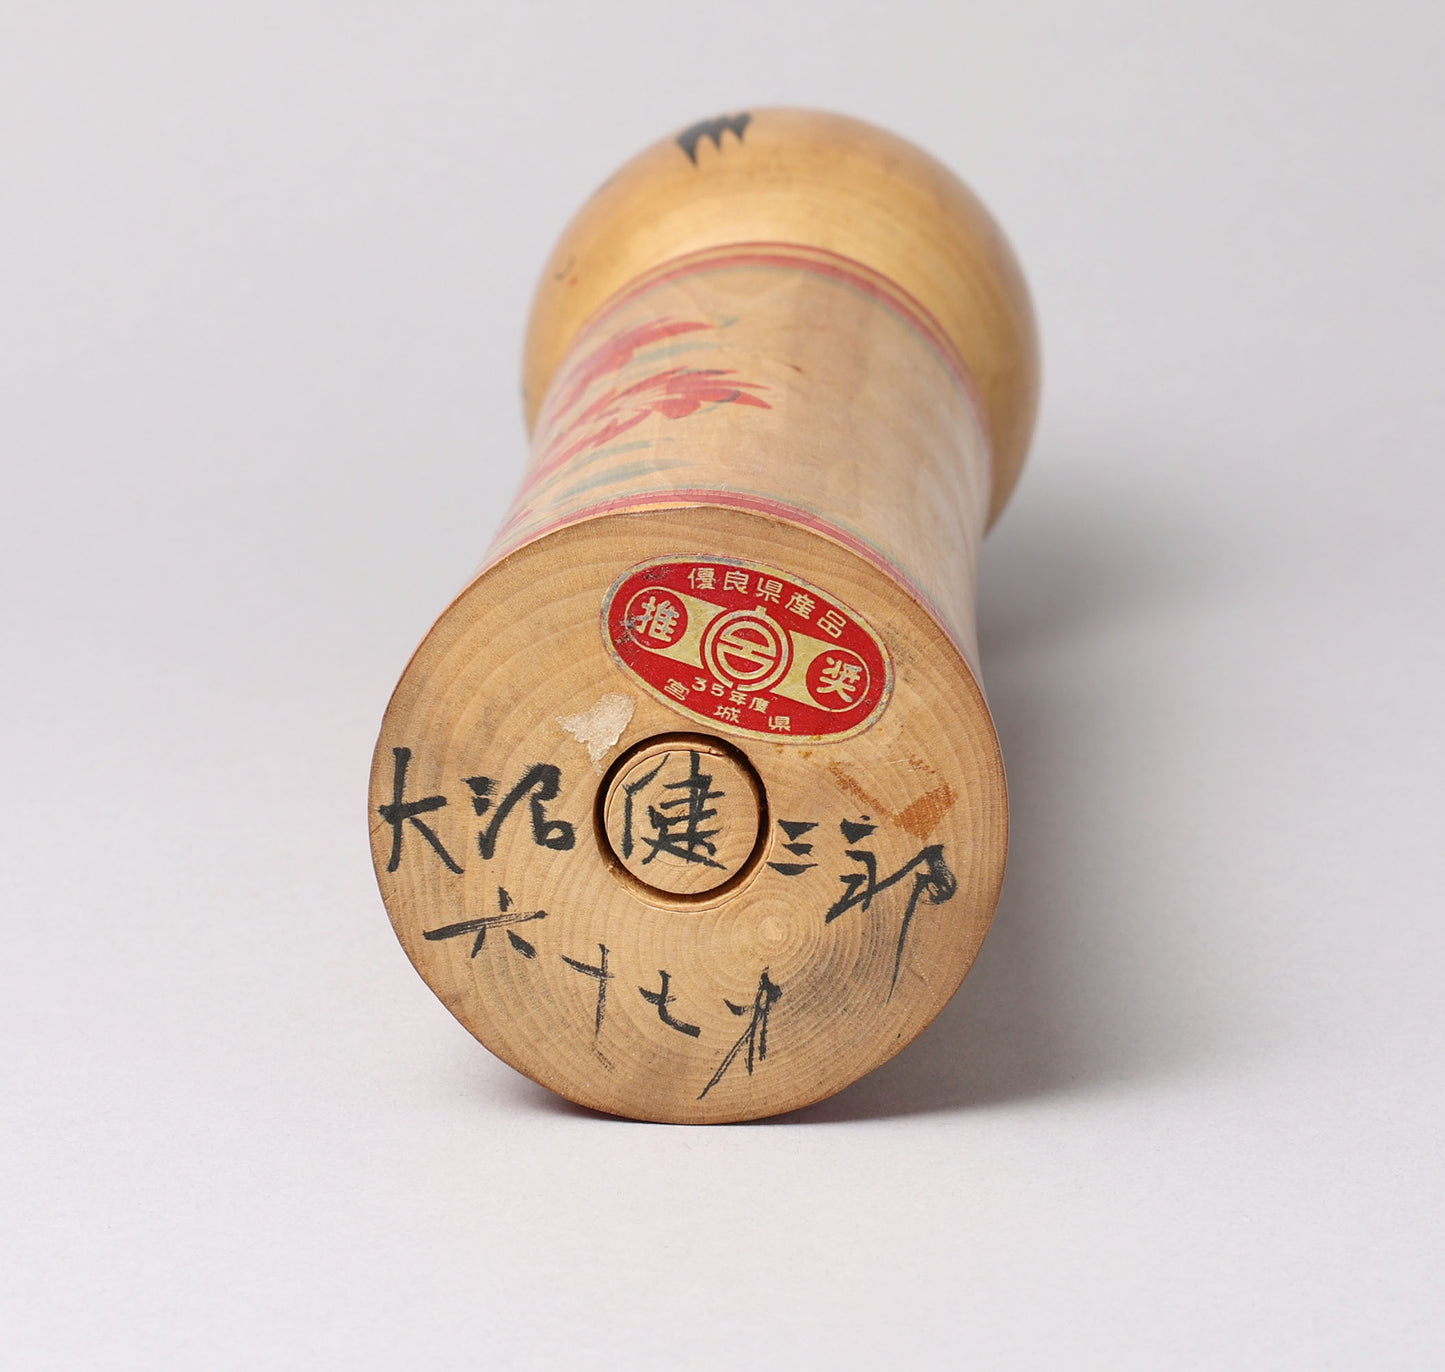 優良県産品
推奨
35年度
宮城県
大沼健三郎
六十七才